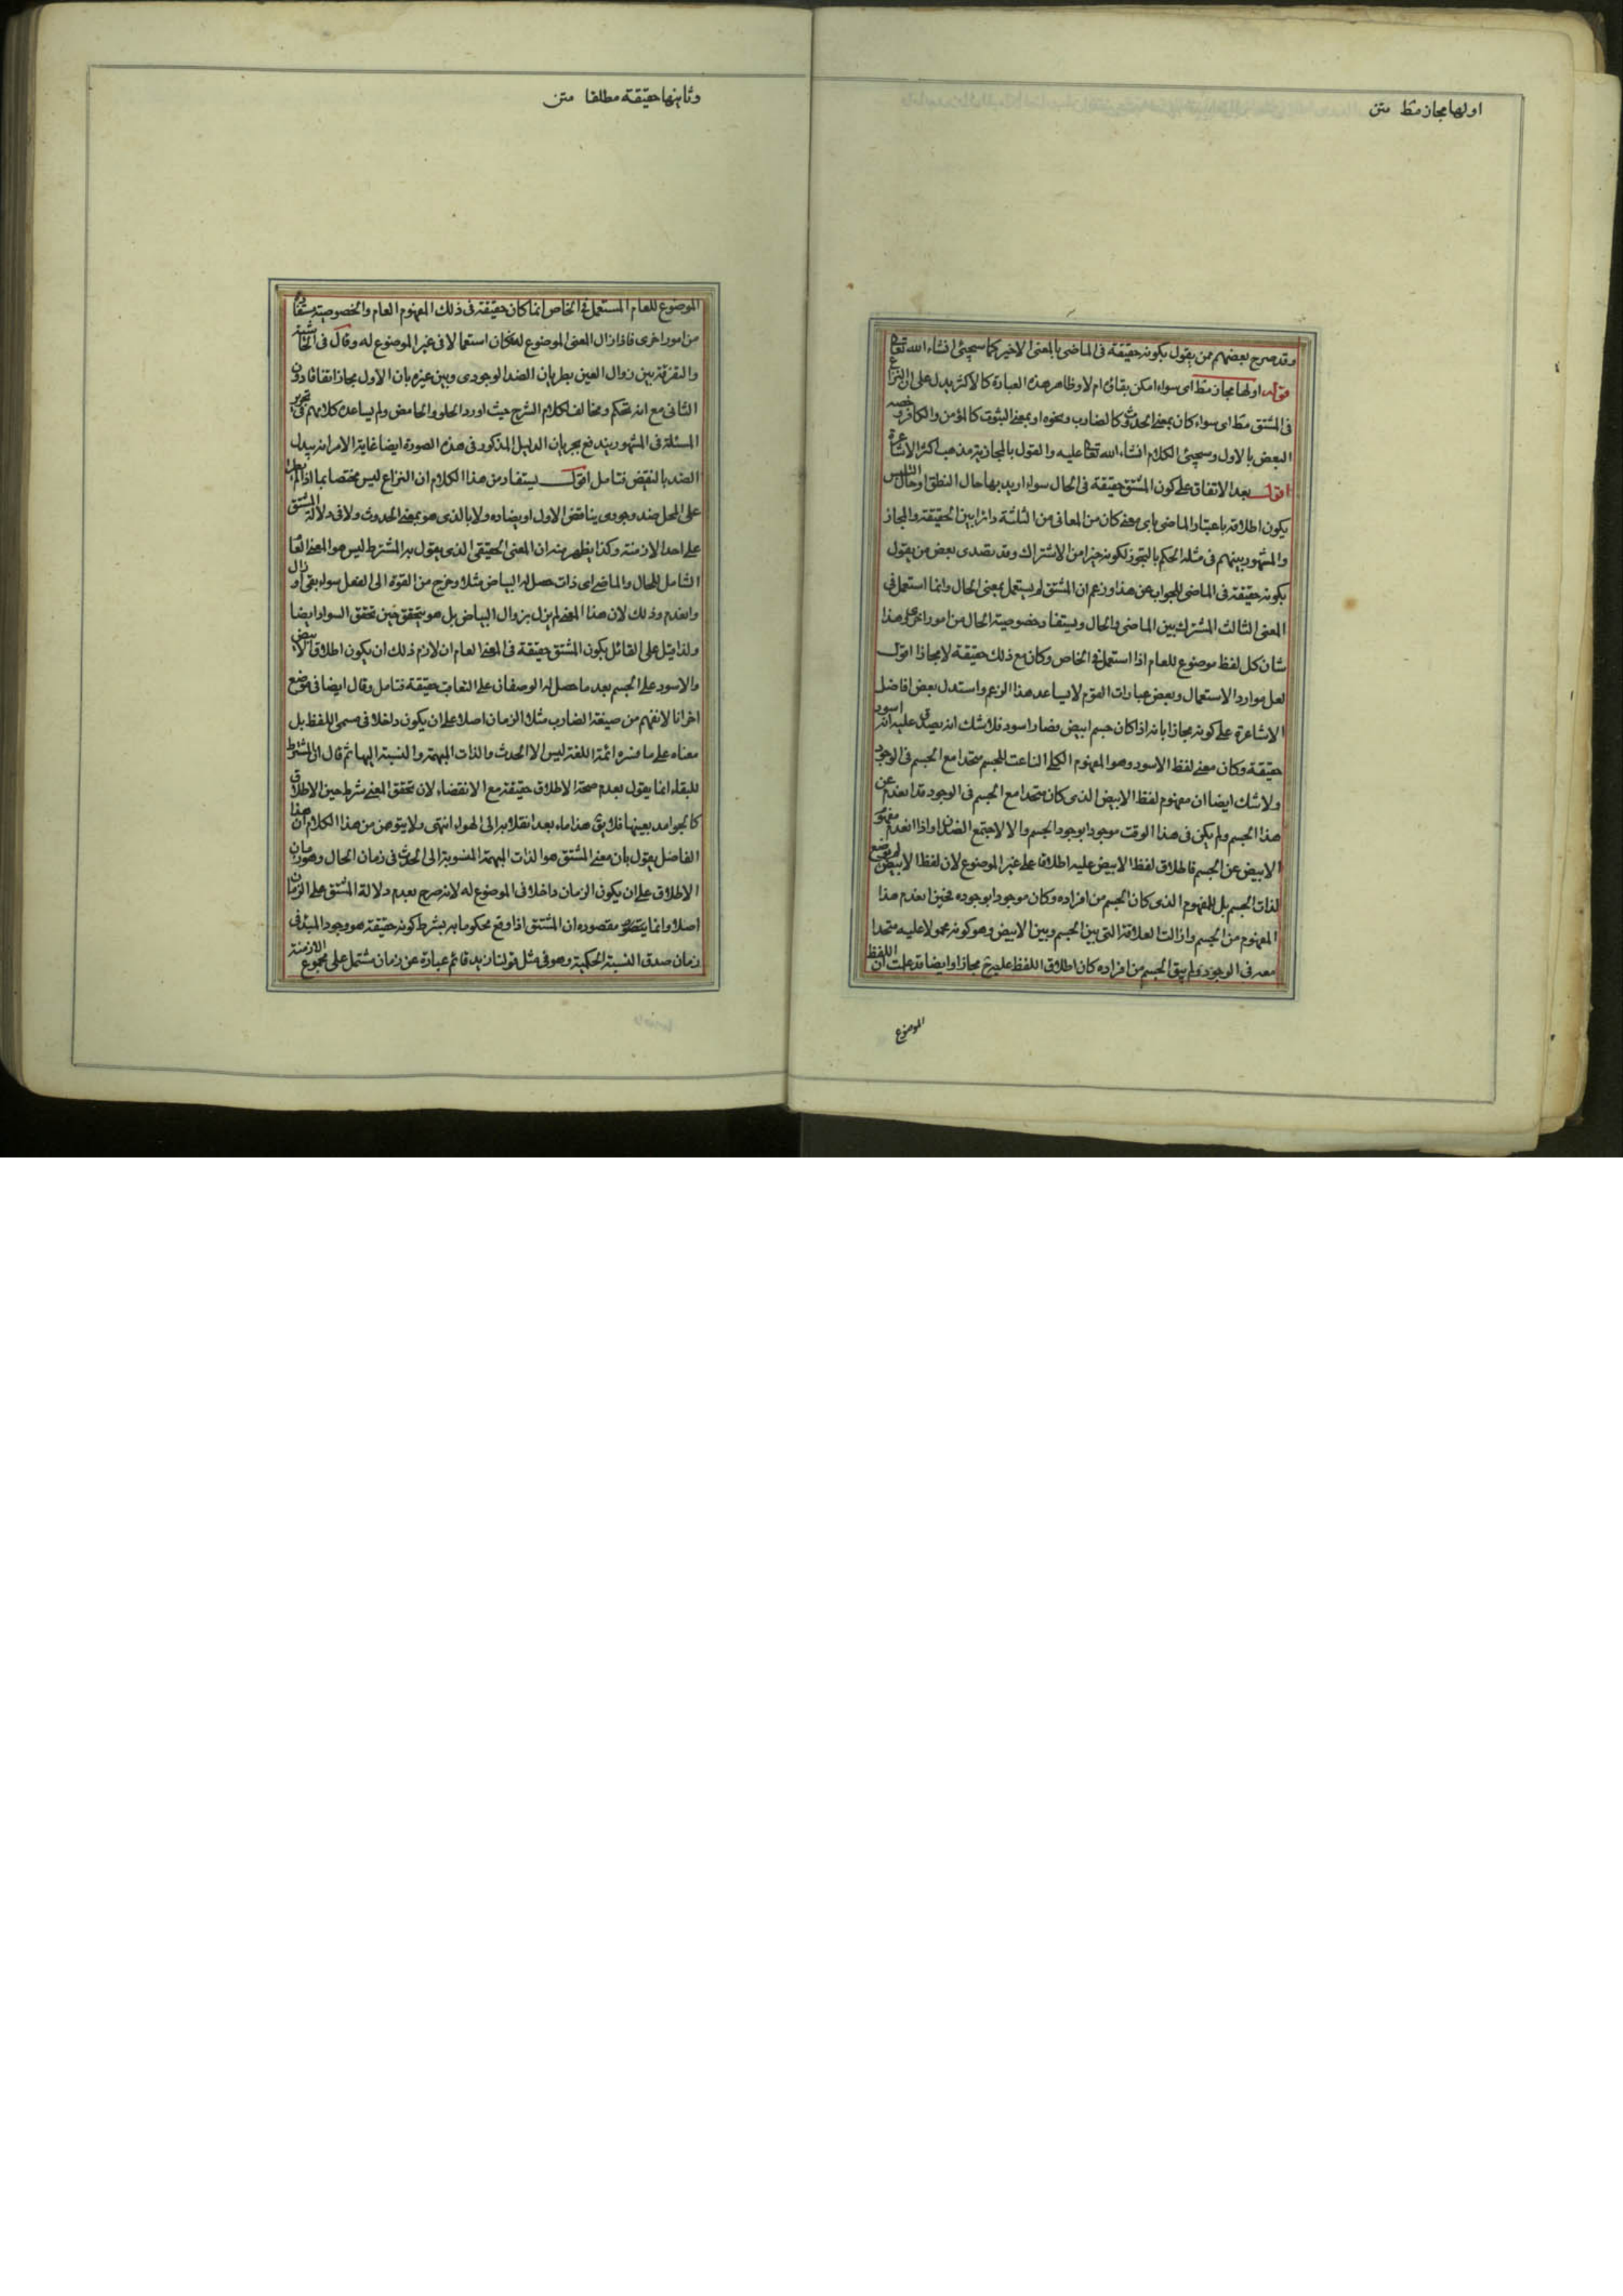 اولها مجاز مط متن
وقد صرح بعضهم ممن يقول بكونه حقيقة فى الماضى بالمعنى الاخير كما سيجئ انشاء الله تعا
قوله اولها مجاز مط اى سواء امكن بقاؤه ام لا وظاهر هذه العبارة كالاكثر يدل على ان النزاع
فى المشتق مط اى سواء كان بمعنى الحدوث كالضارب ونحوه او بمعنى الثبوت كالمؤمن والكافر وخصه
البعض بالاول وسيجئ الكلام انشاء الله تعا عليه والقول بالمجازية مذهب اكثر الاشاعرة
اقول بعد الاتفاق على كون المشتق حقيقة فى الحال سواء اريد بها حال النطق او حال التلبس
يكون اطلاقه باعتبار الماضى باى معنى كان من المعانى من الثلثة دائرا بين الحقيقة والمجاز
والمشهور بينهم فى مثله الحكم بالتجوز لكونه خيرا من الاشتراك وقد تصدى بعض من يقول
بكونه حقيقة فى الماضى للجواب عن هذا وزعم ان المشتق لم يستعمل بمعنى الحال وانما استعمل فى
المعنى الثالث المشترك بين الماضى والحال ويستفاد خصوصية الحال من امور اخر وهذا
شان كل لفظ موضوع للعام اذا استعمل فى الخاص وكان مع ذلك حقيقة لا مجازا اقول
لعل موارد الاستعمال وبعض عبارات القوم لا يساعد هذا الزعم واستدل بعض افاضل
الاشاعرة على كونه مجازا بانه اذا كان جسم ابيض فصار اسود فلا شك انه يصدق عليه انه اسود
حقيقة وكان معنى لفظ الاسود وهو المفهوم الكلى الناعت للجسم متحدا مع الجسم فى الوجود
ولا شك ايضا ان مفهوم لفظ الابيض الذى كان متحدا مع الجسم فى الوجود قد انعدم عن
هذا الجسم ولم يكن فى هذا الوقت موجودا بوجود الجسم والا لاجتمع الضدان واذا انعدم مفهوم
الابيض عن الجسم فاطلاق لفظ الابيض عليه اطلاق على غير الموضوع لان لفظ الابيض لم يوضع
لذات الجسم بل للمفهوم الذى كان الجسم من افراده وكان موجودا بوجوده فحين انعدم هذا
المفهوم من الجسم وازالت العلاقة التى بين الجسم وبين الابيض وهو كونه محمولا عليه متحدا
معه فى الوجود ولم يبق الجسم من افراده كان اطلاق اللفظ عليه ح مجازا وايضا قد علمت ان اللفظ
الموضوع
وثانيها حقيقة مطلقا متن
الموضوع للعام المستعمل فى الخاص انما كان حقيقة فى ذلك المفهوم العام والخصوصية يستفاد
من امور اخرى فاذا زال المعنى الموضوع له كان استعمالا فى غير الموضوع له وقال فى الحاشية
والتفرقة بين زوال العين بطريان الضد الوجودى وبين غيره بان الاول مجاز اتفاقا دون
الثانى مع انه تحكم ومخالف لكلام الشرح حيث اورد الحلو والحامض ولم يساعده كلامهم فى تحرير
المسئلة فى المشهور يندفع بجريان الدليل المذكور فى هذه الصورة ايضا غاية الامر انه يبدل
الضد بالنقيض فتامل اقول يستفاد من هذا الكلام ان النزاع ليس مختصا بما اذا لم يطرأ
على المحل ضد وجودى يناقض الاول او يضاده ولا بالذى هو بمعنى الحدوث ولا فى دلالة المشتق
على احد الازمنة وكذا يظهر منه ان المعنى الحقيقى الذى يقول به المشترط ليس هو المعنى العام
الشامل للحال والماضى اى ذات حصل له البياض مثلا وخرج من القوة الى الفعل سواء بقى او زال
وانعدم وذلك لان هذا المعنى لم يزل بزوال البياض بل هو يتحقق حين تحقق السواد ايضا
ولذا قيل على القائل بكون المشتق حقيقة فى المعنى العام ان لازم ذلك ان يكون اطلاق الابيض
والاسود على الجسم بعد ما حصل له الوصفان على التعاقب حقيقة فتامل وقال ايضا فى موضع
اخر انا لا نفهم من صيغة الضارب مثلا الزمان اصلا على ان يكون داخلا فى مسمى اللفظ بل
معناه على ما فسره ائمة اللغة ليس الا الحدث والذات المبهمة والنسبة اليها ثم قال ان المشترط
للبقاء انما يقول بعدم صحة الاطلاق حقيقة مع الانقضاء لان تحقق المعنى شرط حين الاطلاق
كالجوامد بعينها فلا يق هذا ماء بعد انقلابه الى الهواء انتهى ولا يتوهمن من هذا الكلام ان هذا
الفاضل يقول بان معنى المشتق هو الذات المبهمة المنسوبة الى الحدث فى زمان الحال وهو زمان
الاطلاق على ان يكون الزمان داخلا فى الموضوع له لانه صرح بعدم دلالة المشتق على الزمان
اصلا وانما مقصوده ان المشتق اذا وقع محكوما به بشرط كونه حقيقة هو وجود المبدء فى
زمان صدق النسبة الحكمية وهو فى مثل قولنا زيد قائم عبارة عن زمان مشتمل على مجموع الازمنة